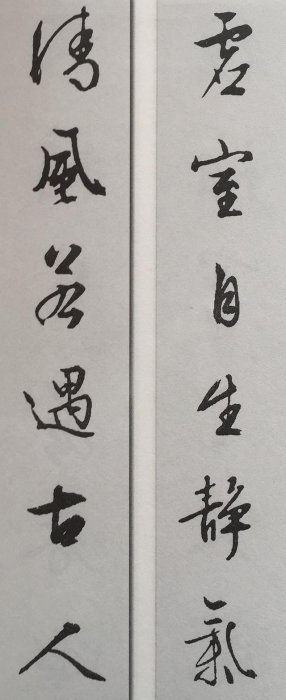 虚室自生静氣
清風若遇古人